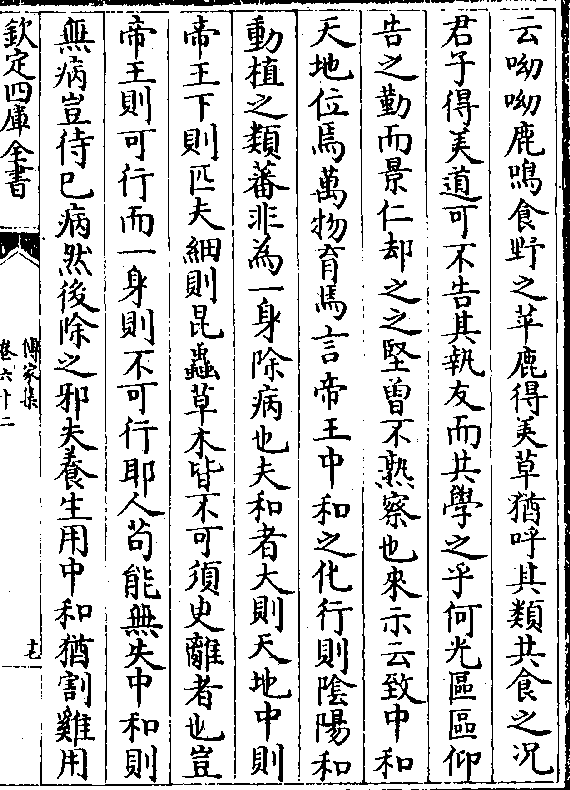 云呦呦鹿鳴食野之苹鹿得美草猶呼其類共食之况
君子得美道可不告其執友而共學之乎何光區區仰
告之勤而景仁却之之堅曾不熟察也來示云致中和
天地位焉萬物育焉言帝王中和之化行則隂陽和
動植之類蕃非為一身除病也夫和者大則天地中則
帝王下則匹夫細則昆蟲草木皆不可須㬰離者也豈
帝王則可行而一身則不可行耶人苟能無失中和則
無病豈待已病然後除之邪夫養生用中和猶割雞用
欽定四庫全書
傳家集
卷六十二